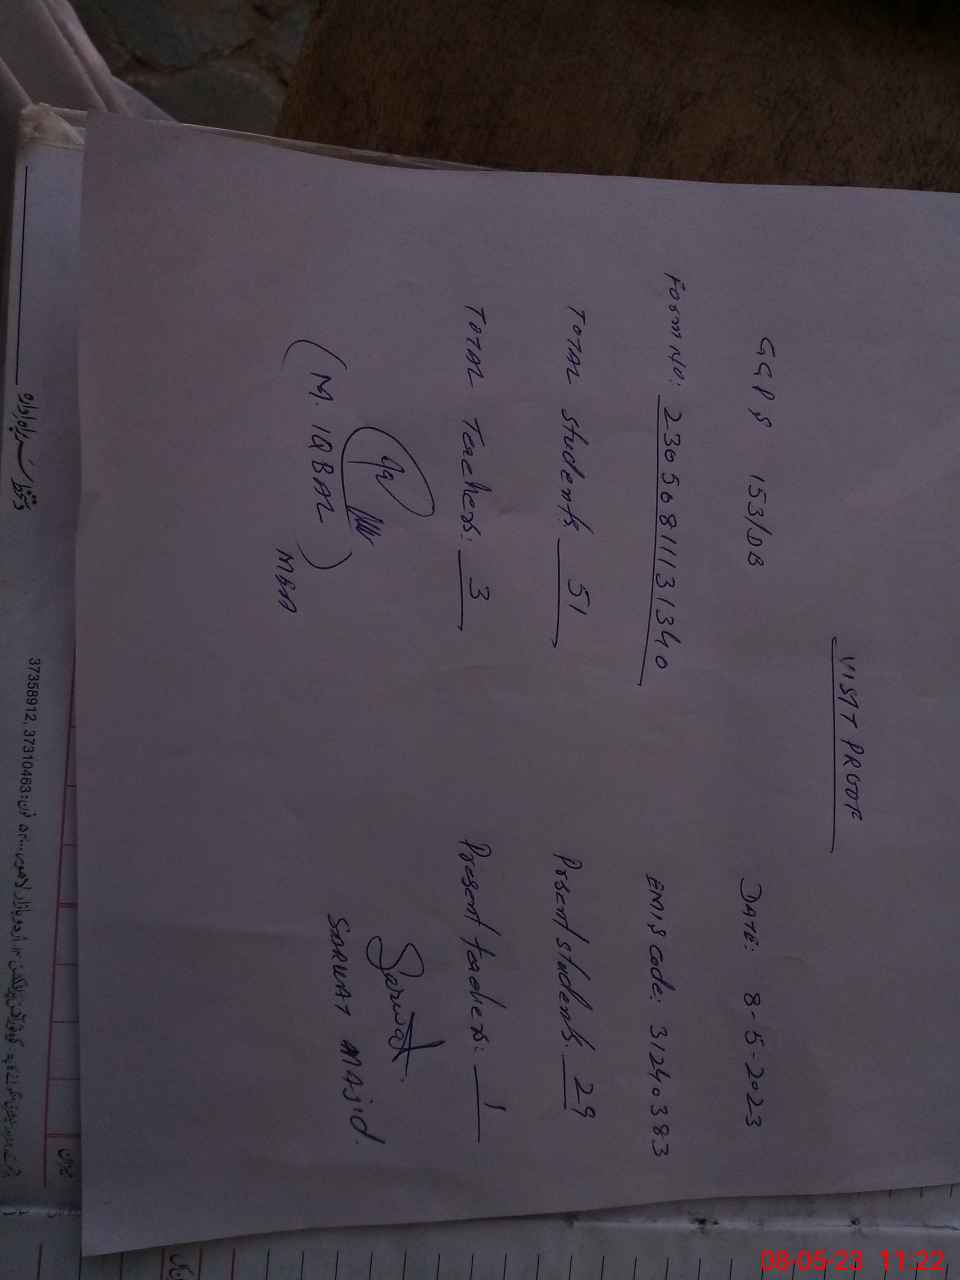 VISIT PROOF
GGPS 153/DB
DATE: 8-5-2023
Form No: 23050811131340
EMIS Code: 31240383
TOTAL Students: 51
Prsent students: 29
TOTAL Teachers: 3
Present teachers: 1
Sarwat
(M. IQBAL)
SARWAT MAJID.
MEA
37358912, 37310463
08-05-23 11:22